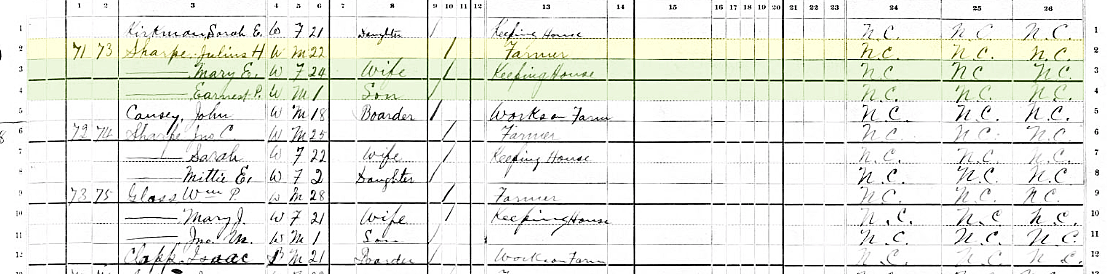 1 2 3 4 5 6 7 8 9 10 11 12 13 14 15 16 17 18 19 20 21 22 23 24 25 26
1 Kirkman, Sarah E. W F 21 Daughter / Keeping House N.C. N.C. N.C. 1
2 71 73 Sharpe, Julius H W M 22 / Farmer N.C. N.C. N.C. 2
3 —— Mary E. W F 24 Wife / Keeping House N.C. N.C. N.C. 3
4 —— Earnest P. W M 1 Son / N.C. N.C. N.C. 4
5 Causey, John W M 18 Boarder / Works on Farm N.C. N.C. N.C. 5
6 72 74 Sharpe Jno C. W M 25 / Farmer N.C. N.C. N.C. 6
7 —— Sarah W F 22 Wife / Keeping House N.C. N.C. N.C. 7
8 —— Mittie E. W F 2 Daughter / N.C. N.C. N.C. 8
9 73 75 Glass Wm P. W M 28 / / Farmer N.C. N.C. N.C. 9
10 —— Mary J. W F 21 Wife / Keeping House N.C. N.C. N.C. 10
11 —— Jno. M. W M 1 Son / N.C. N.C. N.C. 11
12 Clapp, Isaac M 21 Boarder / Works on Farm N.C. N.C. N.C. 12